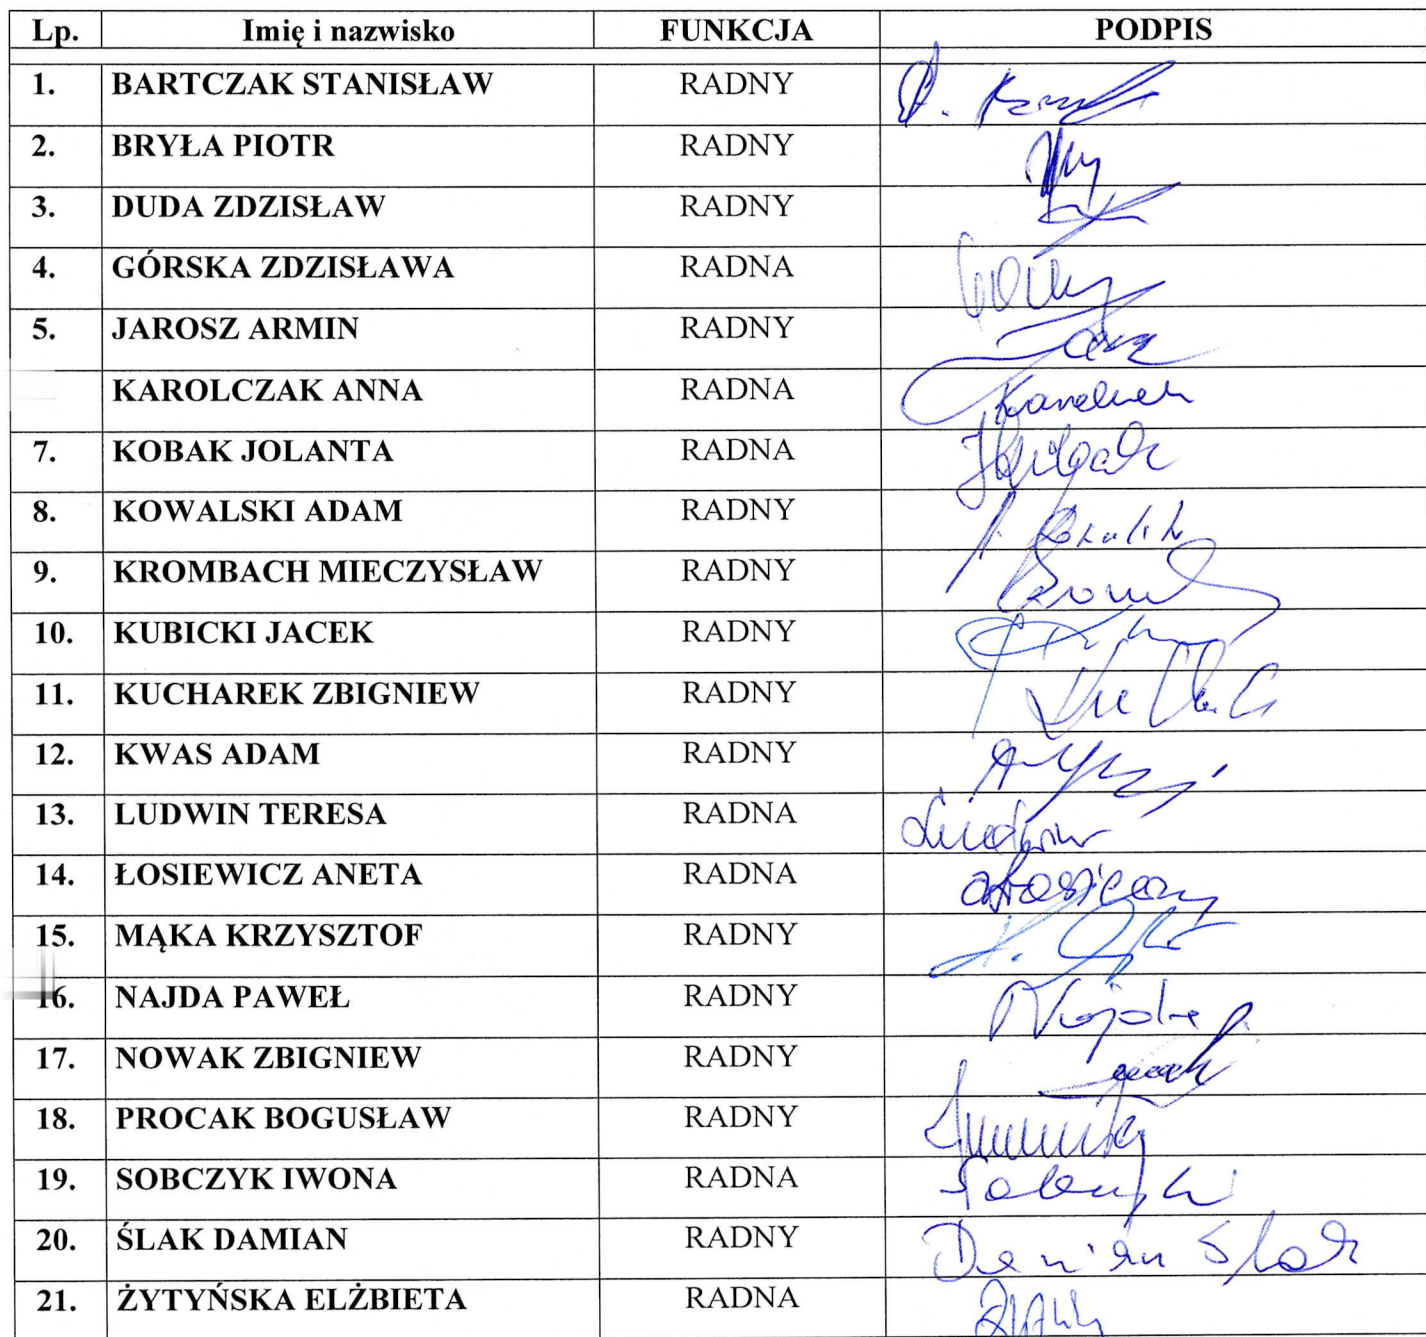 Lp. Imię i nazwisko FUNKCJA PODPIS
1. BARTCZAK STANISŁAW RADNY
2. BRYŁA PIOTR RADNY
3. DUDA ZDZISŁAW RADNY
4. GÓRSKA ZDZISŁAWA RADNA
5. JAROSZ ARMIN RADNY
KAROLCZAK ANNA RADNA
7. KOBAK JOLANTA RADNA
8. KOWALSKI ADAM RADNY
9. KROMBACH MIECZYSŁAW RADNY
10. KUBICKI JACEK RADNY
11. KUCHAREK ZBIGNIEW RADNY
12. KWAS ADAM RADNY
13. LUDWIN TERESA RADNA Ludwin
14. ŁOSIEWICZ ANETA RADNA
15. MĄKA KRZYSZTOF RADNY
16. NAJDA PAWEŁ RADNY
17. NOWAK ZBIGNIEW RADNY
18. PROCAK BOGUSŁAW RADNY
19. SOBCZYK IWONA RADNA
20. ŚLAK DAMIAN RADNY Damian Ślak
21. ŻYTYŃSKA ELŻBIETA RADNA